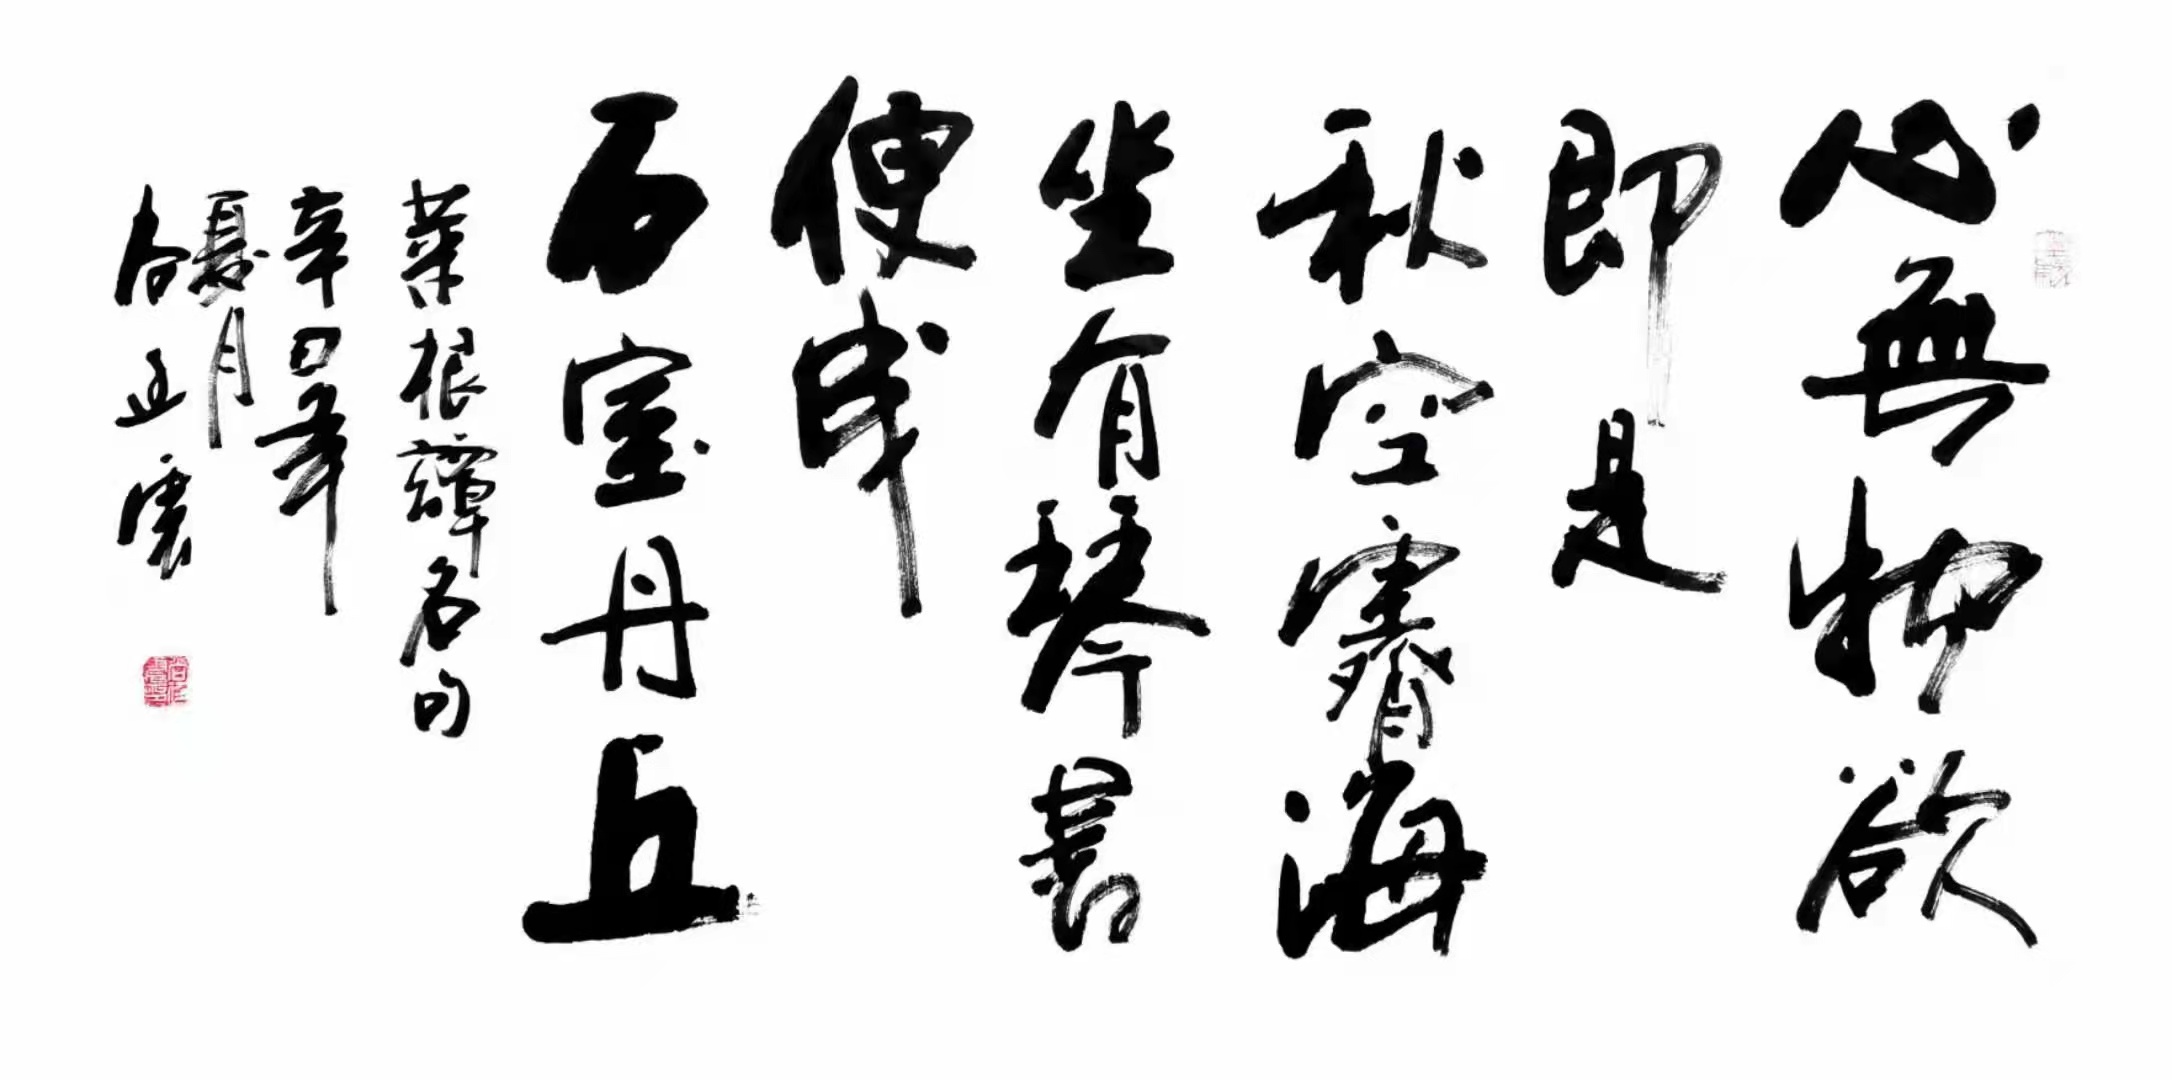 心無物欲
即是
秋空霽海
坐有琴書
便成
石室丹丘
菜根譚名句
辛丑年
夏月